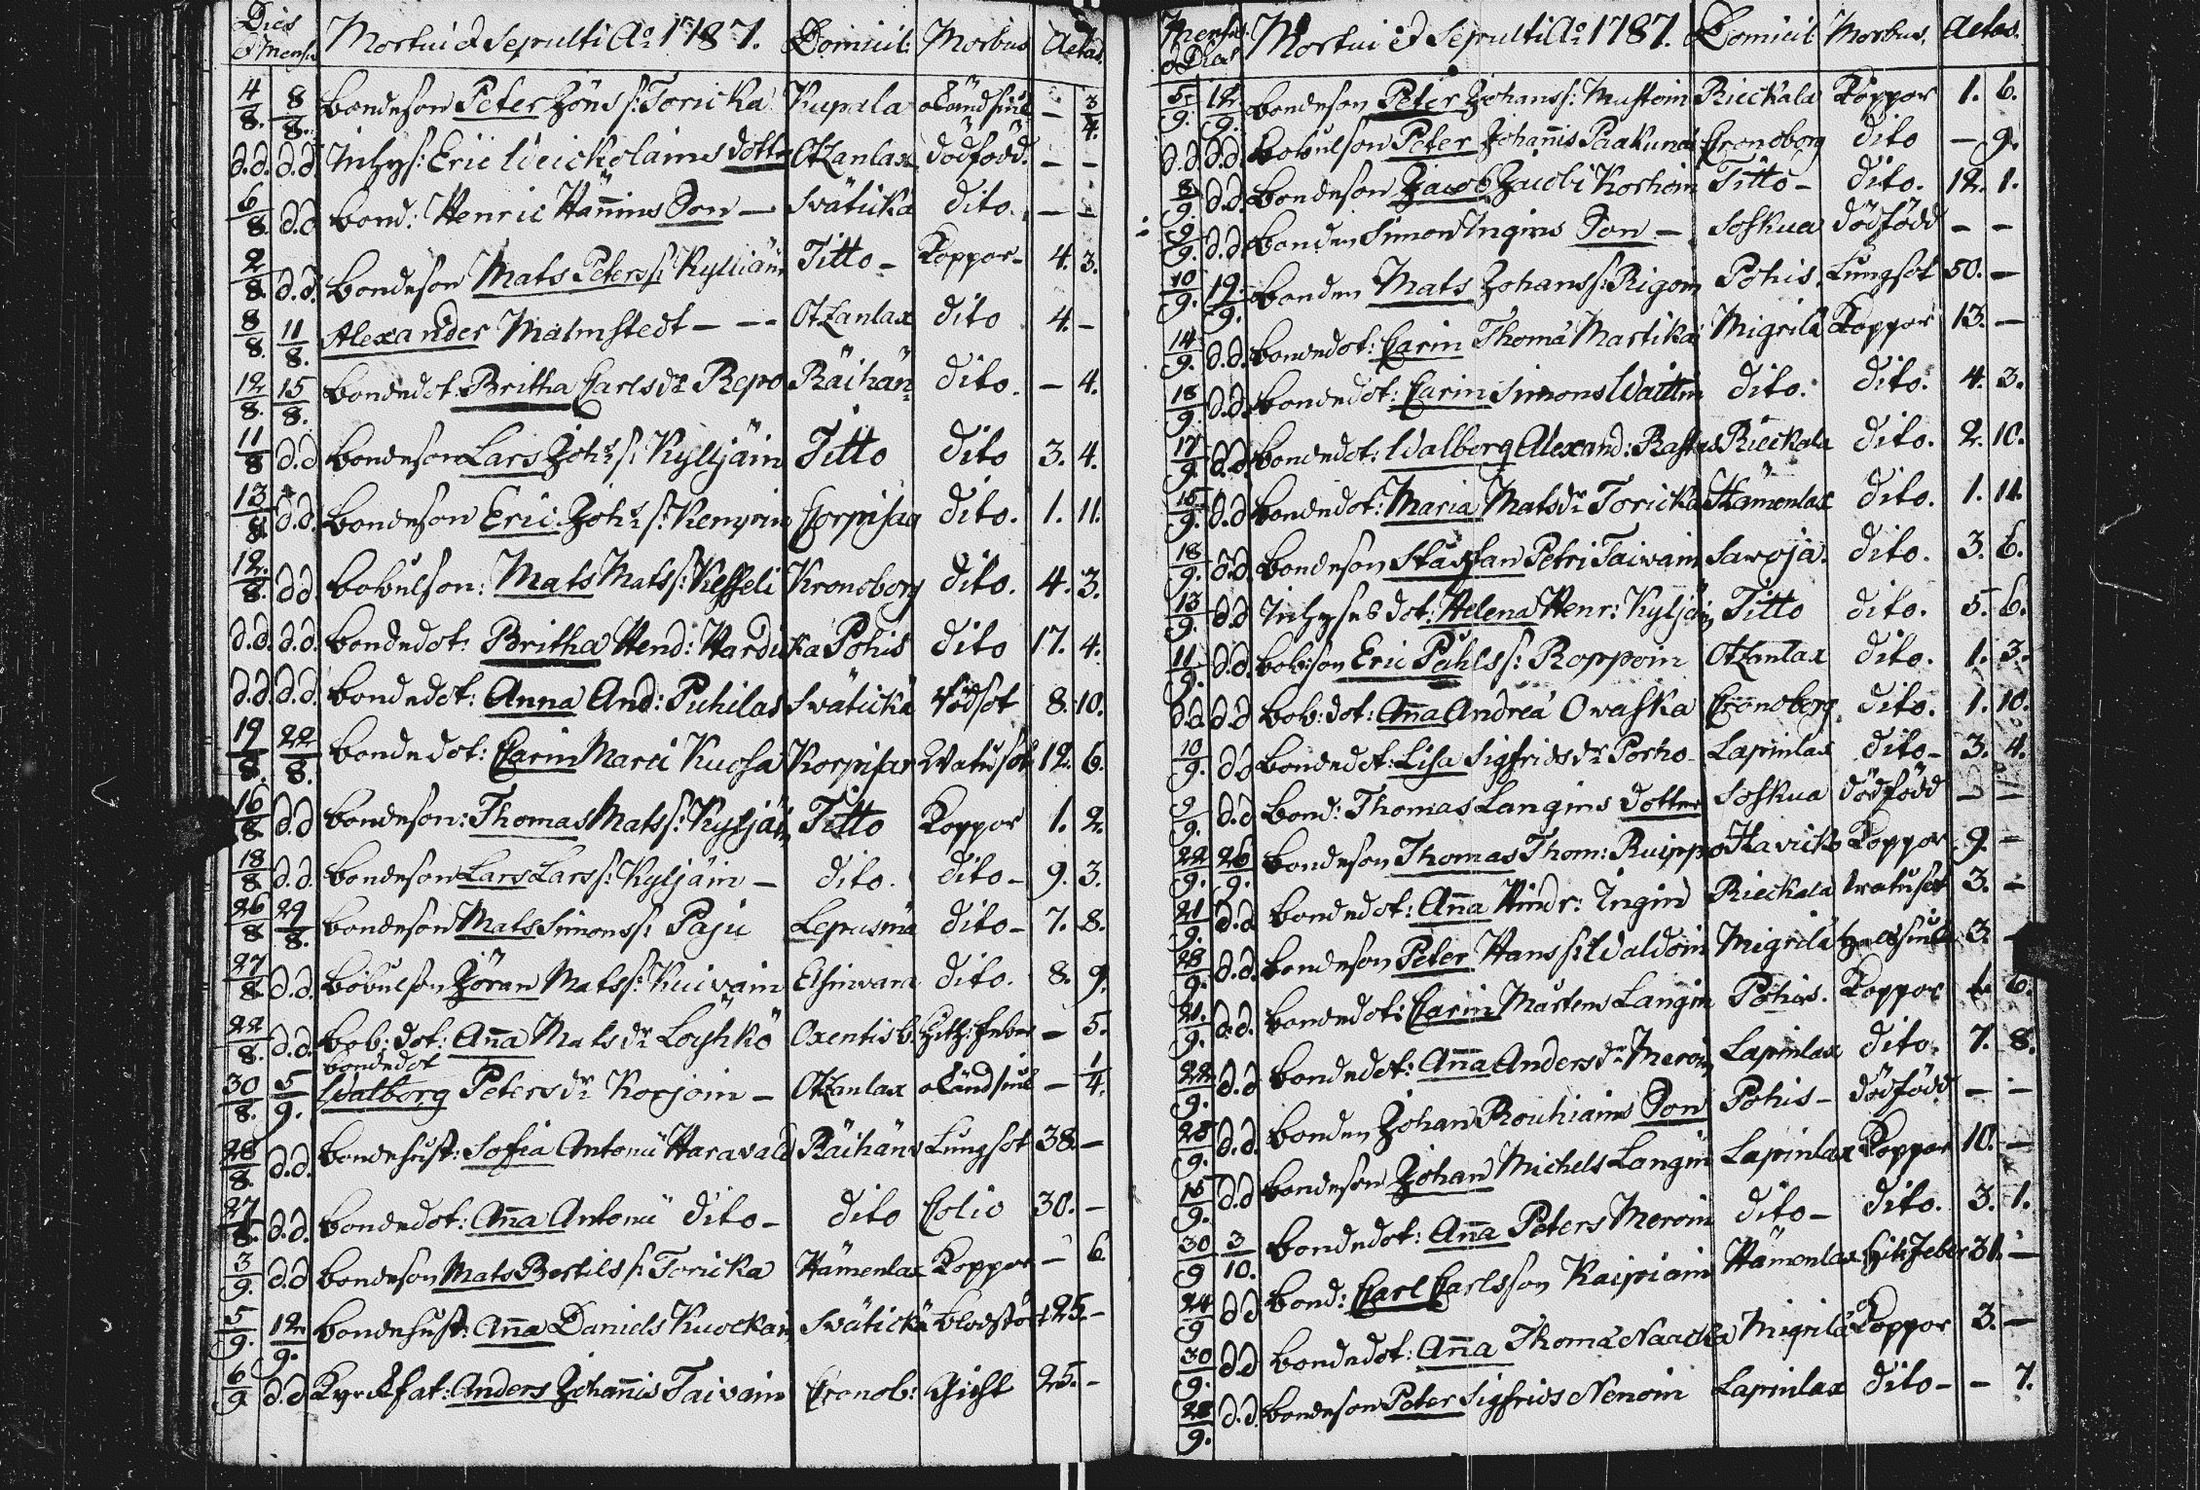 Dies & Mens. Mortui & Sepulti Ao 1787. Domicil: Morbus Aetas.
4/8. 8/8. bondeson Peter Jöns s: Toricka Kupala okändsiuk — 3/4.
d.d. d.d. Inhys: Eric dotter Otzanlax dödfödd. — —
6/8 d.d bond: Henric Hännins Son — Svätickä dito. — —
2/8 d.d. bondeson Mats Peterss: Kylliäin Titto — Koppor — 4. 3.
8/8. 11/8. Alexander Malmstedt — — — Otzanlax dito 4. —
12/8. 15/8. bondedot. Britha Carlsdr Repo Räihän: dito. — 4.
11/8 d.d bondeson Lars Joh: s: Kylljäin Titto dito 3. 4.
13/8. d.d. bondeson Eric Joh: s: Kenppin Corpisaa dito. 1. 11.
12./8. d.d bobulson: Mats Mats s: Kesseli Kronoborg dito. 4. 3.
d.d. d.d. bondedot: Britha Hend: Hardicka Pohis dito 17. 4.
d.d. d.d. bondedot: Anna And: Puhilas Svätickä Rödsot 8. 10.
19/8. 22/8. bondedot: Carin Marci Kuosa Korpisar Watusot 12. 6.
16/8. d.d bondeson: Thomas Mats s: Kyljäin Titto Koppor 1. 2.
18/8. d.d. bondeson Lars Lars s: Kyljäin — dito. dito — 9. 3.
26/8. 29/8. bondeson Mats Simonss: Paju Lepusmä dito — 7. 8.
27/8. d.d. bobulson Jöran Mats s: Kuivain Elsinvara dito. 8. 9.
22/8. d.d. bob: dot: Anna Matsdr Loyhkö Oxentis b. Hitz: feber — 5.
bondedot
30/8. 5/9. Walborg Petersdr Korjoin — Otzanlax okändsiuk — 1/4.
28/8. d.d. bondehust: Sofia Antonii Haravald Räihäns Lungsot 38. —
27/8. d.d. bondedot: Anna Antonii dito — dito Colic 30. —
3/9. d.d bondeson Mats Bertils s: Toricka Hämenlax Koppor — 6
5/9. 12/9. bondehust: Anna Daniels Kuockain Svätickä blodstört 25. —
6/9 d.d Kyrckfat: Anders Johannis Taivain Cronob: Gicht 25. —
Mens. & Dies Mortui et Sepulti Ao 1787. Domicil Morbus. Aetas.
5/9. 12/9. bondeson Peter Johanss: Mustoin Rieckala Koppor 1. 6.
d.d d.d. bobulson Peter Johannis Paakunai Cronoborg dito — 9.
8/9. d.d bondeson Jacob Jacobi Korhoin Titto — dito. 12. 1.
9/9. d.d bonden Simon Ingins Son — Soskua dödfödd — —
10/9. 19/9. bonden Mats Johanss: Rigoin Pohis. Lungsot 50. —
14/9. d.d. bondedot: Carin Thomae Martikai Migrilä Koppor 13. —
18/9. d.d. bondedot: Carin Simons Waittin dito. dito. 4. 3.
17/9. d.d bondedot: Walborg Alexand: Rastas Rieckala dito. 2. 10.
15/9. d.d bondedot: Maria Matsdr Toricka Hämenlax dito. 1. 11.
18/9. d.d. bondeson Staffan Petri Taivain Savoja. dito. 3. 6.
13/9. d.d Inhyses dot: Helena Henr: Kyljäin Titto dito. 5. 6.
11/9. d.d. bob: son Eric Påhls s: Roppoin Otzanlax dito. 1. 3.
d.d d.d bob: dot: Anna Andreae Owaska Cronoborg. dito. 1. 10.
10/9. d.d bondedot: Lisa Sigfridsdr Porho Lapinlax dito — 3. 4.
9/9. d.d bond: Thomas Langins dotter Soskua dödfödd — —
22/9. 26/9. bondeson Thomas Thom: Ruippo Haricko Koppor 9. —
21/9. d.d bondedot: Anna Hindr: Ingin Rieckala Watusot 3. —
28/9. d.d. bondeson Peter Hans s: Waldoin Migrilä halssiuk 3. —
21./9. d.d. bondedot: Carin Mårtens Langin Pohis. Koppor 1. 6.
22/9. d.d bondedot: Anna Andersdr Meroin Lapinlax dito. 7. 8.
25/9. d.d. bonden Johan Rouhiains Son Pohis — dödfödd — —
15/9. d.d bondeson Johan Michels Langin Lapinlax Koppor 10. —
30/9 3/10. bondedot: Anna Peters Meroin dito — dito. 3. 1.
24/9 d.d bond: Carl Carlsson Kaipiain Hämenlax Hitz.feber 31. —
30/9. d.d bondedot: Anna Thomae Naacka Migrilä Koppor 3. —
28/9. d.d. bondeson Peter Sigfrids Nenoin Lapinlax dito — — 7.